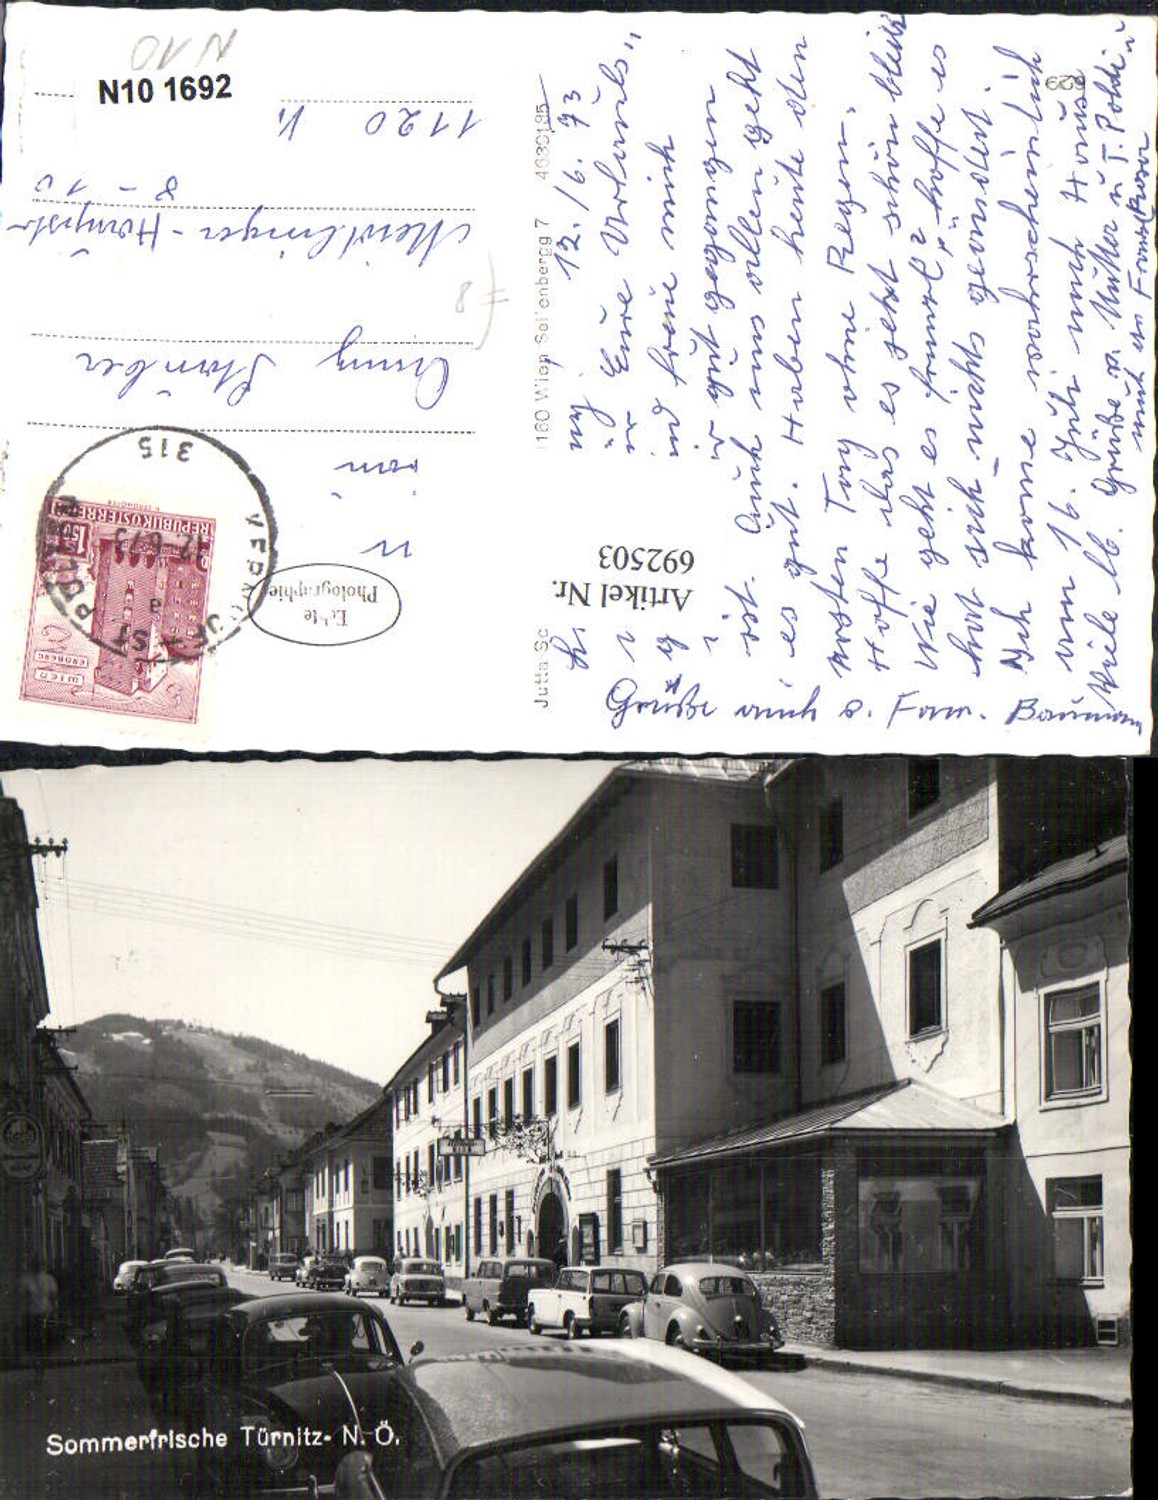 N10
N10 1692
1120 Vi
8 - 10
Meidlinger-Hauptstr
Anny
315
REPUBLIK ÖSTERREICH
1.50
12-6.73
WIEN
ERDBERG
Echte
Photographie
Artikel Nr.
692503
Jutta Se
1160 Wien Sel enbergg 7 4630185
629
12./6. 73
Eure Urlaubs
freue mich
gut gegangen
ist. Auch uns allen geht
es gut. Haben heute den
ersten Tag ohne Regen.
Hoffe das es jetzt schön bleibt
Wie geht es hoffe es
hat sich nichts geändert.
Ich komme wahrscheinlich
am 16. Juli nach Hause
Viele lb. Grüße a. Mutter u. T. Poldi u
auch an
Grüße auch a. Fam. Baumann
Sommerfrische Türnitz- N. Ö.